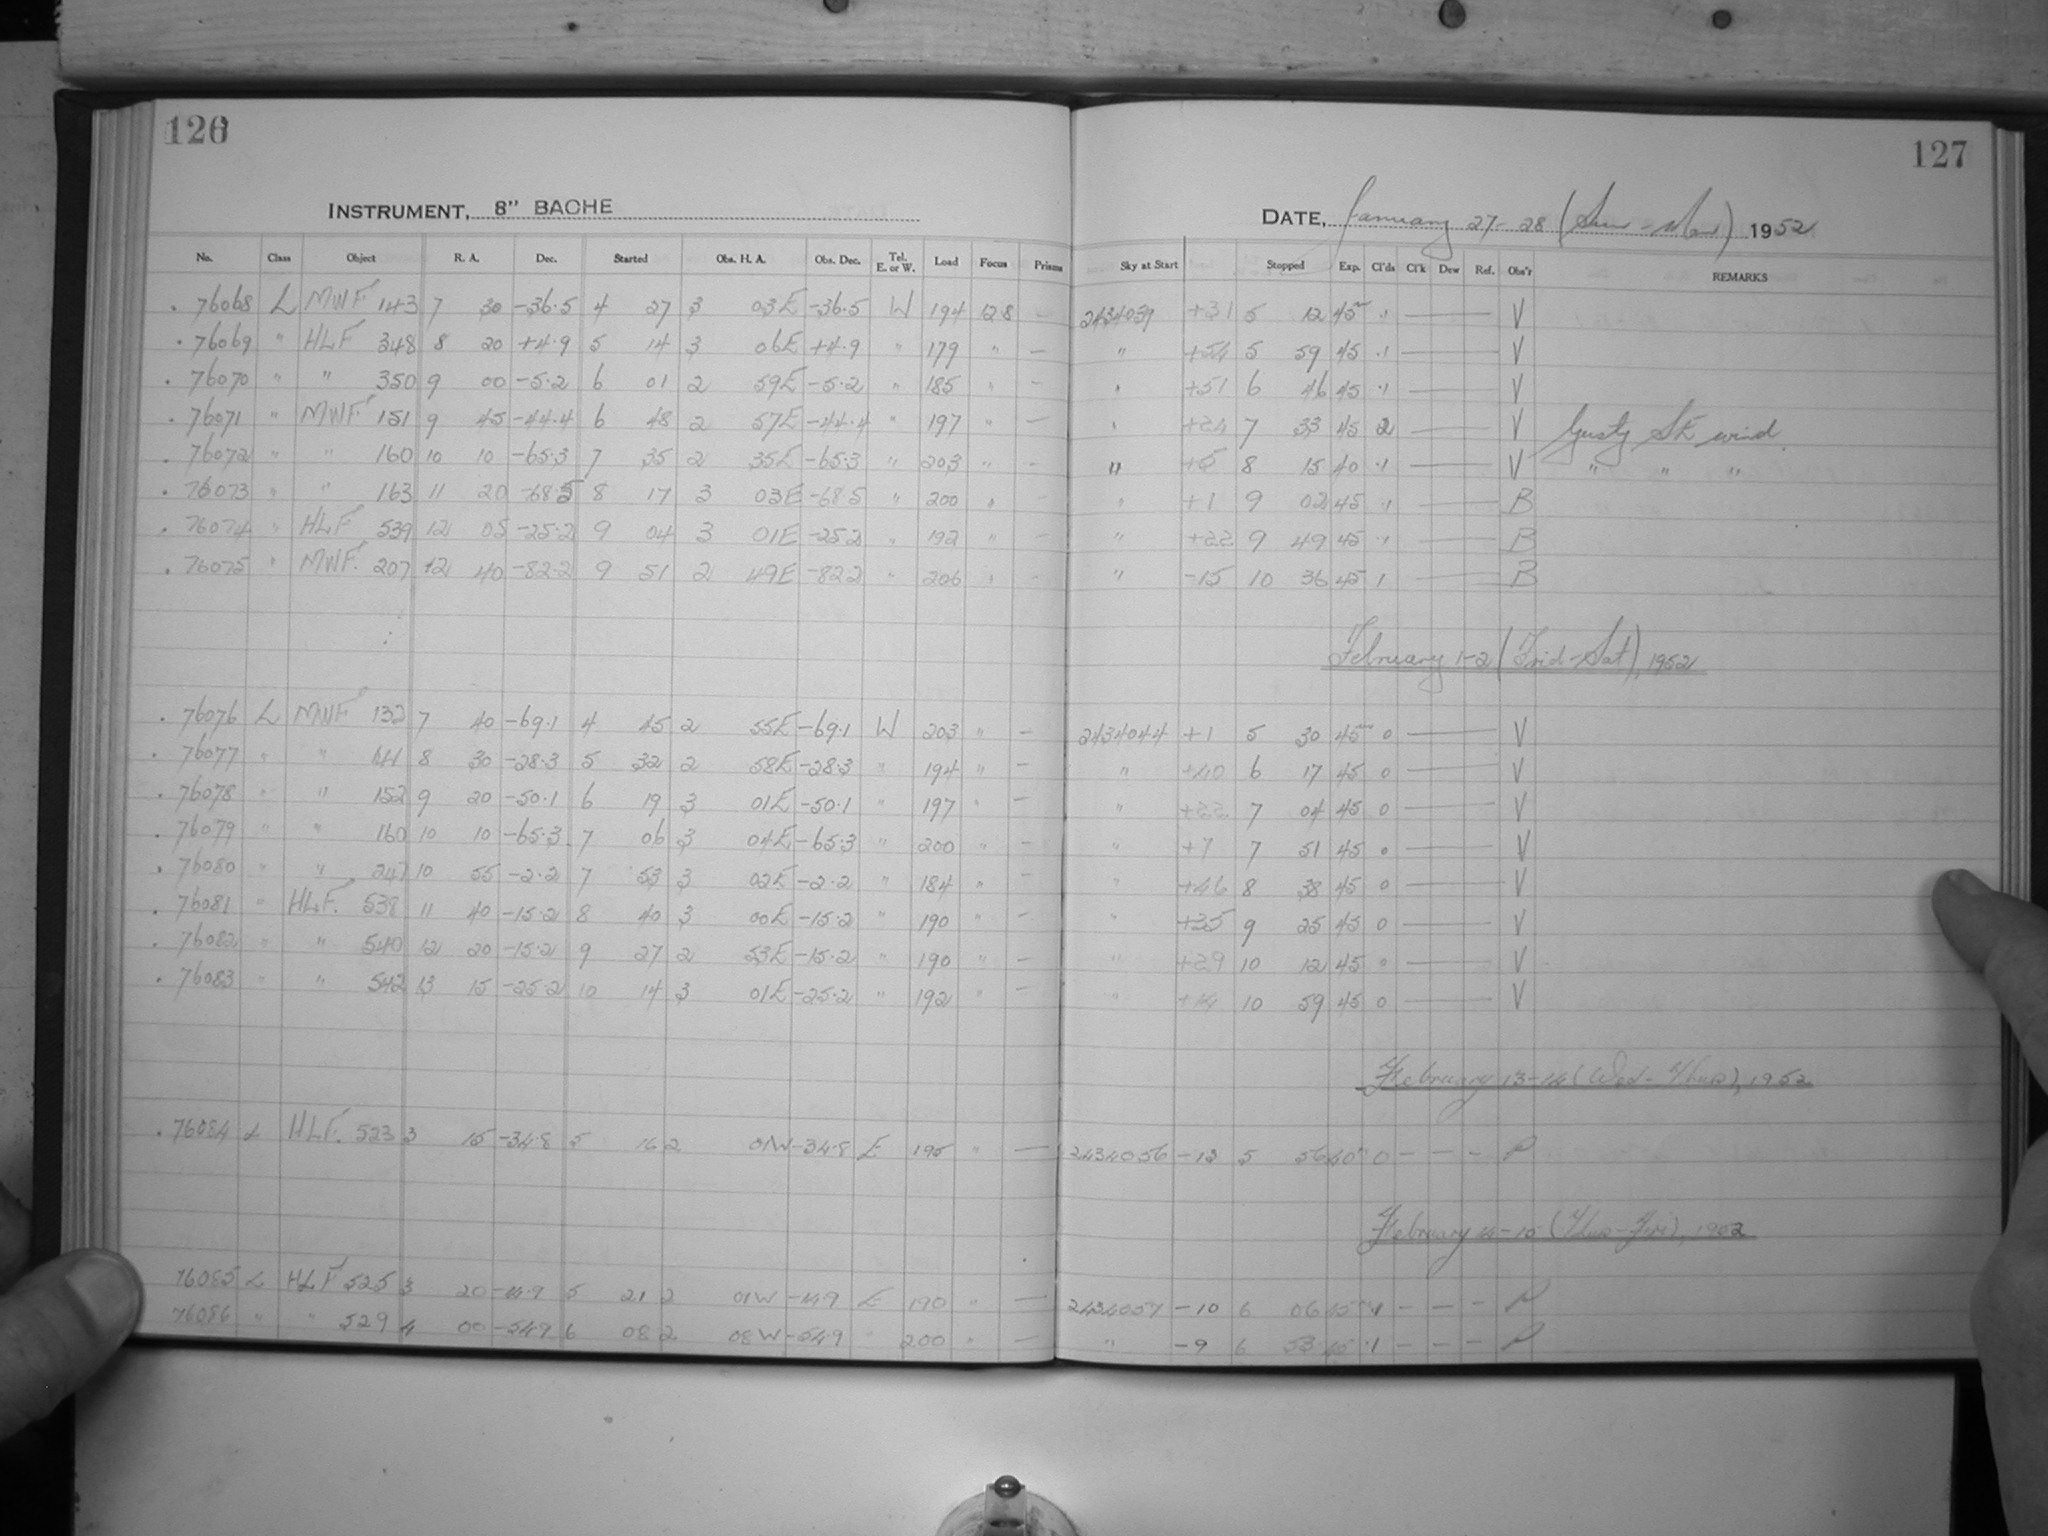 126
127
INSTRUMENT, 8" BACHE
DATE, January 27-28 (Sun - Mon) 1952
No. Class Object R. A. Dec. Started Obs. H. A. Obs. Dec. Tel. E. or W. Load Focus Prisms Sky at Start Stopped Exp. Cl'ds Cl'k Dew Ref. Obs'r REMARKS
. 76068 L MWF 143 7 30 -36.5 4 27 3 03E -36.5 W 194 128 - 2434039 +31 5 12 45 .1 — V
. 76069 " HLF 348 8 20 +4.9 5 14 3 06E +4.9 " 179 " - " +54 5 59 45 .1 — V
. 76070 " " 350 9 00 -5.2 6 01 2 59E -5.2 " 185 " - " +51 6 46 45 .1 — V
. 76071 " MWF 151 9 45 -44.4 6 48 2 57E -44.4 " 197 " - " +24 7 33 45 2 — V Gusty SE wind
. 76072 " " 160 10 10 -65.3 7 35 2 35E -65.3 " 203 " - " +5 8 15 40 .1 — V " " "
. 76073 " " 163 11 20 -68.5 8 17 3 03E -68.5 " 200 " - " +1 9 02 45 .1 — B
. 76074 " HLF 539 12 05 -25.2 9 04 3 01E -25.2 " 192 " - " +22 9 49 45 .1 — B
. 76075 " MWF. 207 12 40 -82.2 9 51 2 49E -82.2 " 206 " - " -15 10 36 45 1 — B
February 1-2 (Frid-Sat), 1952
. 76076 L MWF 132 7 40 -69.1 4 45 2 55E -69.1 W 203 " - 2434044 +1 5 30 45 0 — V
. 76077 " " 8 30 -28.3 5 32 2 58E -28.3 " 194 " - " +40 6 17 45 0 — V
. 76078 " " 152 9 20 -50.1 6 19 3 01E -50.1 " 197 " - " +22 7 04 45 0 — V
. 76079 " " 160 10 10 -65.3 7 06 3 04E -65.3 " 200 " - " +7 7 51 45 0 — V
. 76080 " " 247 10 55 -2.2 7 53 3 02E -2.2 " 184 " - " +46 8 38 45 0 — V
. 76081 " HLF. 538 11 40 -15.2 8 40 3 00E -15.2 " 190 " - " +35 9 25 45 0 — V
. 76082 " " 540 12 20 -15.2 9 27 2 53E -15.2 " 190 " - " +29 10 12 45 0 — V
. 76083 " " 542 13 15 -25.2 10 14 3 01E -25.2 " 192 " - " +14 10 59 45 0 — V
February 13-14 (Wed-Thur), 1952
. 76084 L HLF. 523 3 15 -34.8 5 16 2 01W -34.8 E 195 " — 2434056 5 56 40 0 - - - P
February 14-15 (Thur-Fri), 1952
76085 L HLF 525 3 20 5 21 2 01W E 190 " — 2434057 -10 6 06 45 .1 - - - P
76086 " " 529 4 00 -54.9 6 08 2 08W -54.9 " 200 " — " -9 6 53 45 .1 - - - P